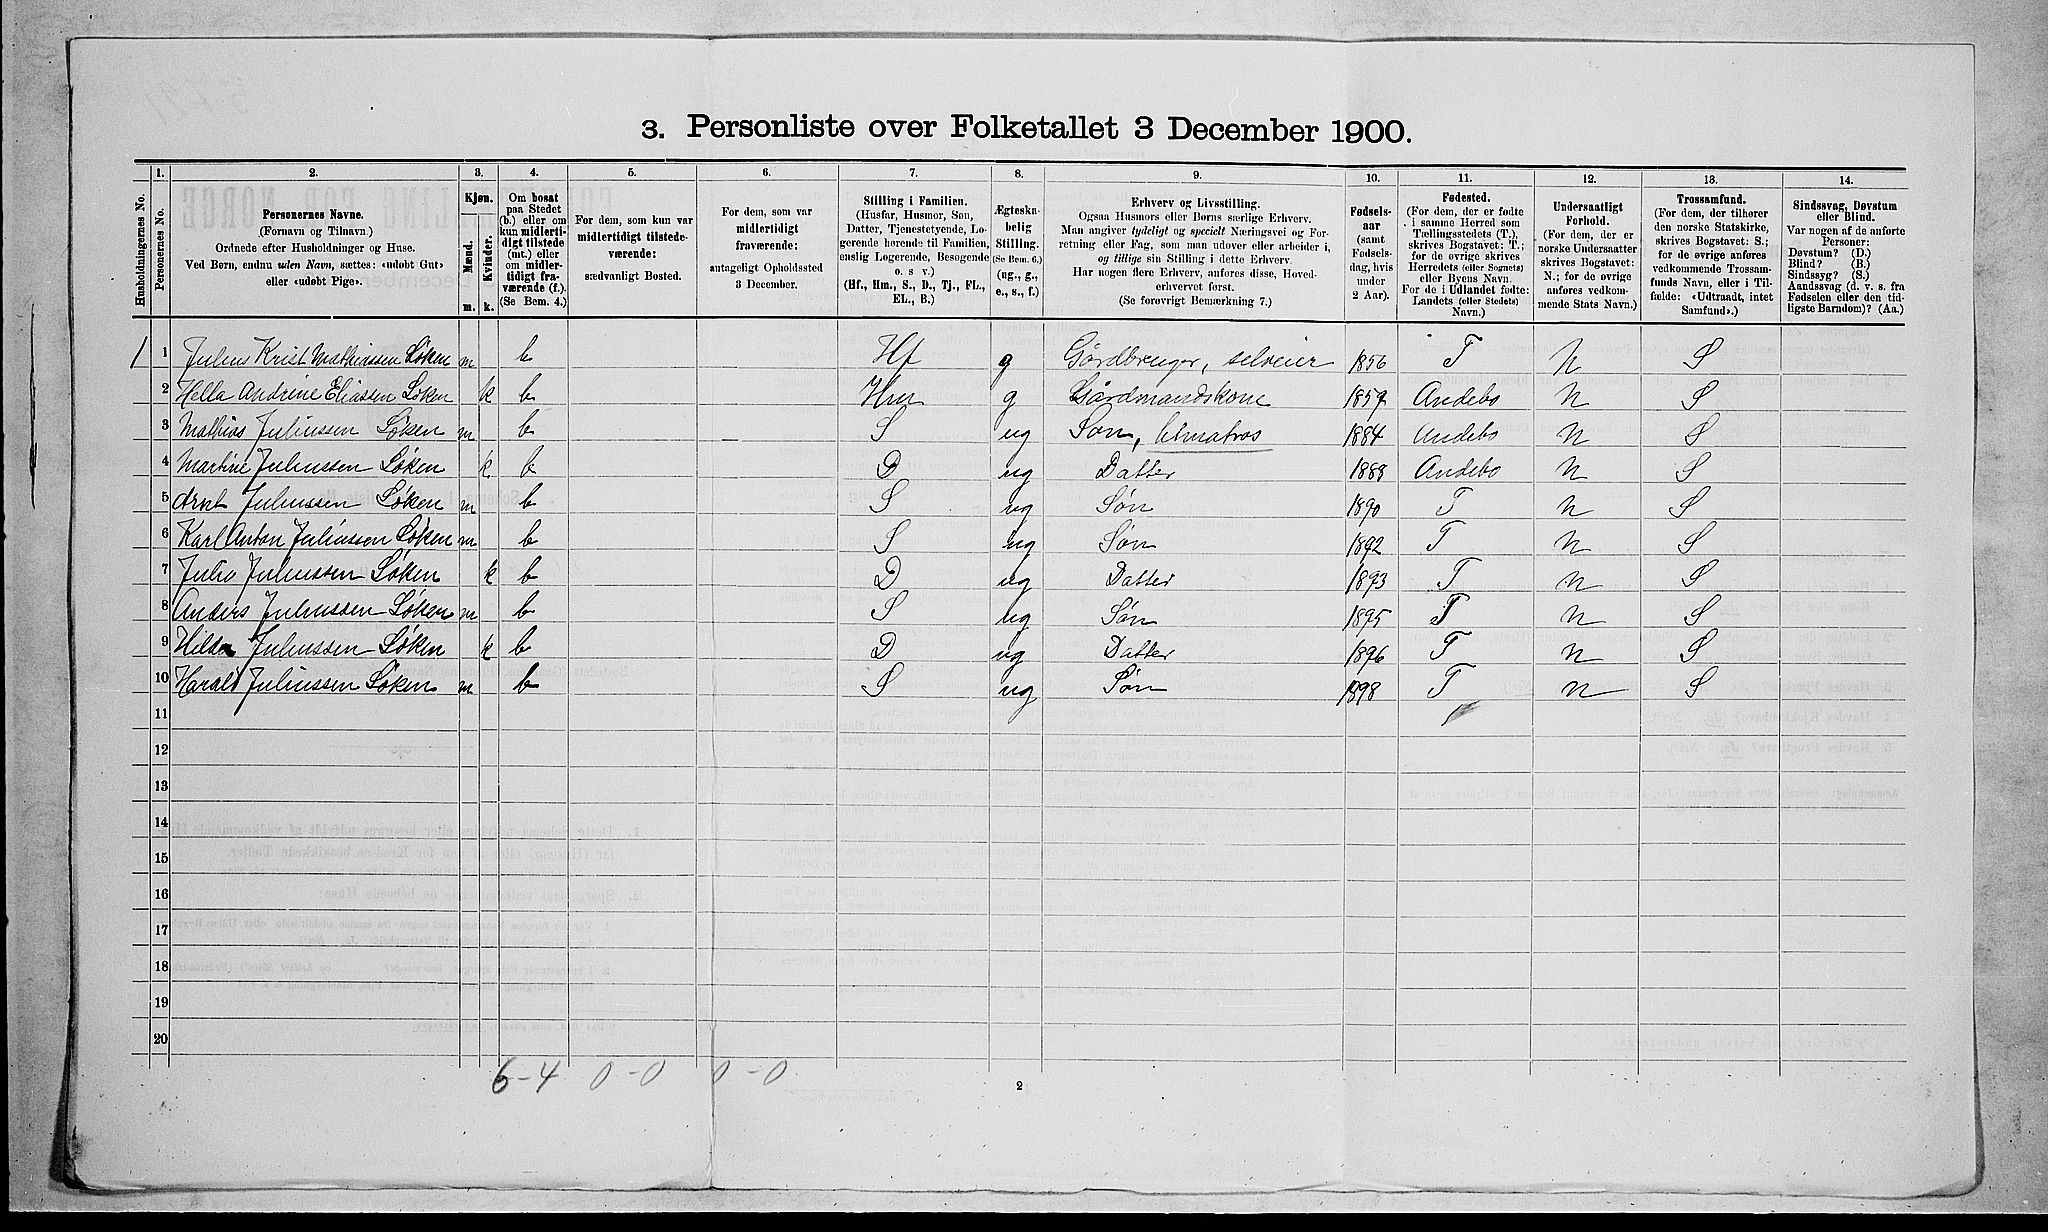 3. Personliste over Folketallet 3 December 1900.
Husholdningernes No.
1. Personernes No.
2. Personernes Navne. (Fornavn og Tilnavn.) Ordnede efter Husholdninger og Huse. Ved Børn, endnu uden Navn, sættes: «udøbt Gut» eller «udøbt Pige».
3. Kjøn. Mænd. Kvinder. m. k.
4. Om bosat paa Stedet (b.) eller om kun midlertidigt tilstede (mt.) eller om midlertidigt fraværende (f.). (Se Bem. 4.)
5. For dem, som kun var midlertidigt tilstedeværende: sædvanligt Bosted.
6. For dem, som var midlertidigt fraværende: antageligt Opholdssted 3 December.
7. Stilling i Familien. (Husfar, Husmor, Søn, Datter, Tjenestetyende, Logerende hørende til Familien, enslig Logerende, Besøgende o. s v.) (Hf., Hm., S., D., Tj., FL., EL., B.)
8. Ægteskabelig Stilling. (Se Bem. 6.) (ug., g., e., s., f.)
9. Erhverv og Livsstilling. Ogsaa Husmors eller Børns særlige Erhverv. Man angiver tydeligt og specielt Næringsvei og Forretning eller Fag, som man udøver eller arbeider i, og tillige sin Stilling i dette Erhverv. Har nogen flere Erhverv, anføres disse, Hovederhvervet først. (Se forøvrigt Bemærkning 7.)
10. Fødselsaar (samt Fødselsdag, hvis under 2 Aar).
11. Fødested. (For dem, der er fødte i samme Herred som Tællingsstedets (T.), skrives Bogstavet: T.; for de øvrige skrives Herredets (eller Sognets) eller Byens Navn. For de i Udlandet fødte: Landets (eller Stedets) Navn.)
12. Undersaatligt Forhold. (For dem, der er norske Undersaatter skrives Bogstavet: N.; for de øvrige anføres vedkommende Stats Navn.)
13. Trossamfund. (For dem, der tilhører den norske Statskirke, skrives Bogstavet: S.; for de øvrige anføres vedkommende Trossamfunds Navn, eller i Tilfælde: «Udtraadt, intet Samfund».)
14. Sindssvag, Døvstum eller Blind. Var nogen af de anførte Personer: Døvstum? (D.) Blind? (B.) Sindssyg? (S.) Aandssvag (d. v. s. fra Fødselen eller den tidligste Barndom)? (Aa.)
1 1 Julius Krist Mathiassen Søken m b Hf g Gårdbruger, selveier 1856 T N S
2 Hella Andrine Eliassen Søken k b Hm g Gårdmandskone 1859 Andebo N S
3 Mathias Juliussen Søken m b S ug Søn, 1884 Andebo N S
4 Martine Juliussen Søken k b D ug Datter 1888 Andebo N S
5 Arnt Juliussen Søken m b S ug Søn 1890 T N S
6 Karl Anton Juliussen Søken m b S ug Søn 1892 T N S
7 Julie Juliussen Søken k b D ug Datter 1893 T N S
8 Anders Juliussen Søken m b S ug Søn 1895 T N S
9 Hilda Juliussen Søken k b D ug Datter 1896 T N S
10 Harald Juliussen Søken m b S ug Søn 1898 T N S
11
12
13
14
15
16
17
18
19
20
6-4 0-0 0-0
2